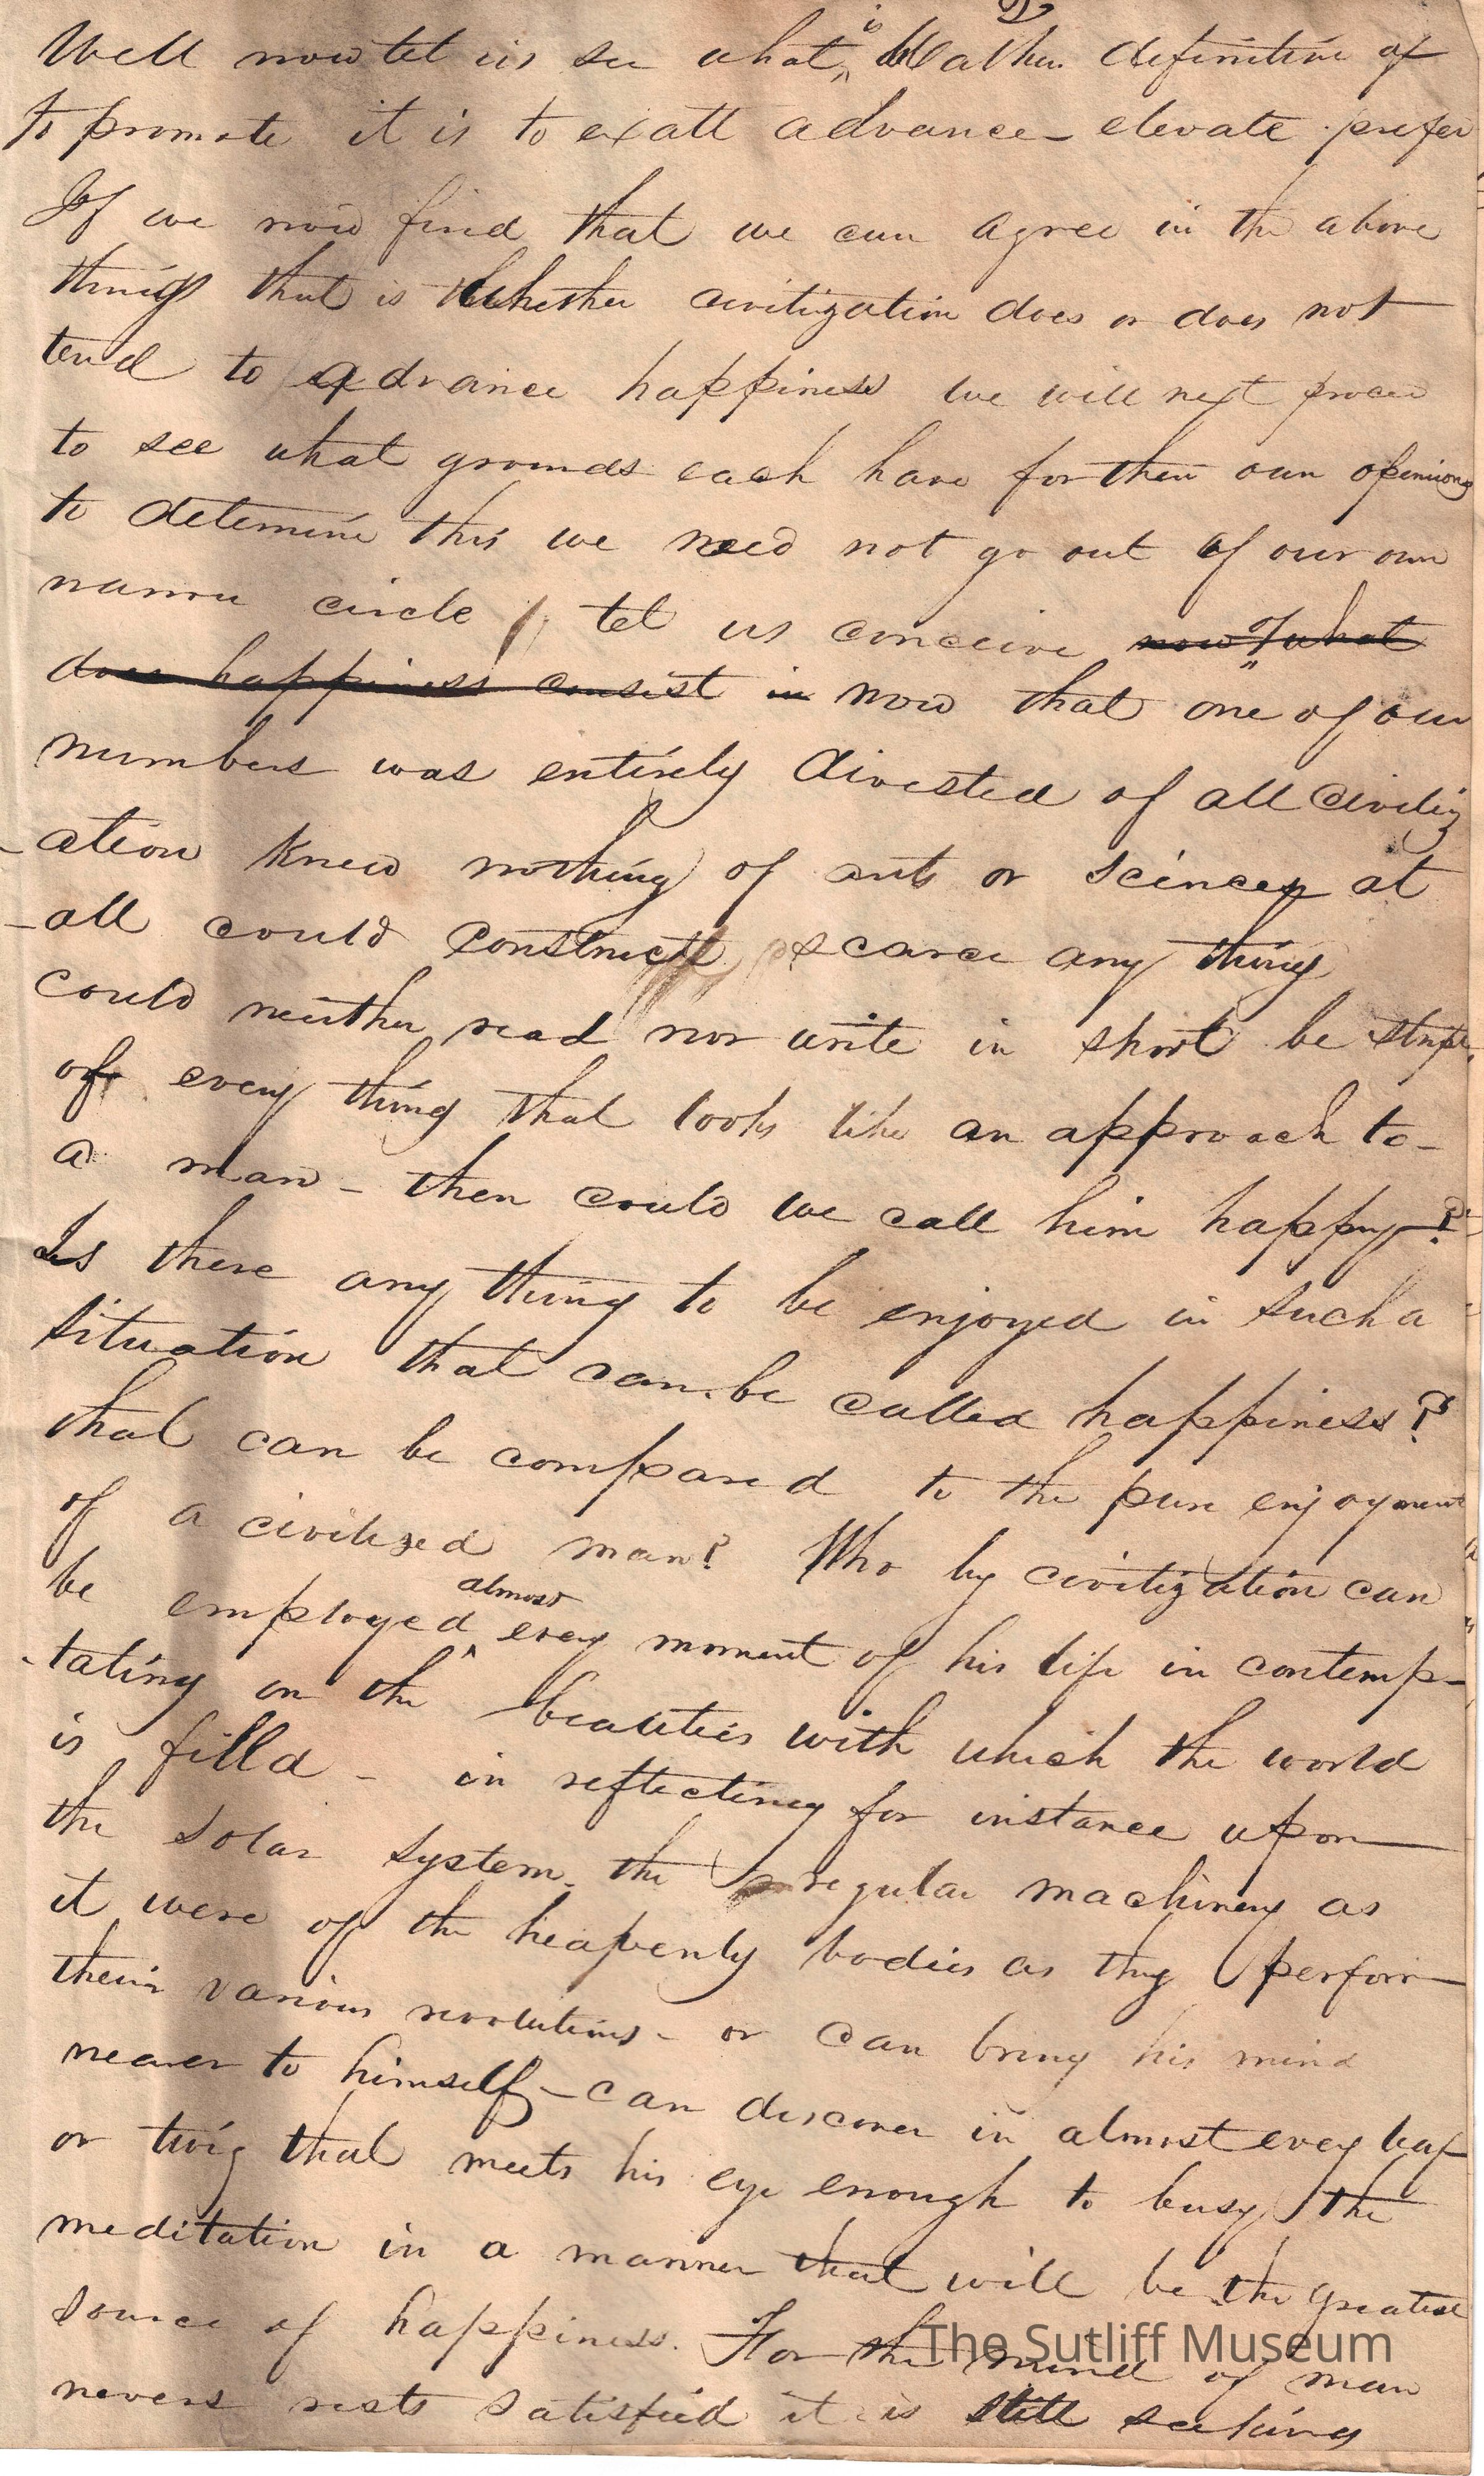 2
Well now let us see what is Wallkers definitine of
to promote it is to exalt advance elevate prefer
If we now find that we can agree in the above
things that is whether civilization does or does not
tend to advance happiness we will next procee
to see what grounds each have for their own opinions
to detemine this we need not go out of our own
narrow circle let us conceive now what
does happiness consist in now that one of our
numbers was entirely divested of all civiliz
-ation knew nothing of arts or sciences at
-all could construct scarce any thing
could neither read nor write in short be stript
of every thing that looks like an approach to
a man - then could we call him happy?
Is there any thing to be enjoyed in such a
situation that can be called happiness?
that can be compared to the pure enjoyment
of a civilized man? Who by civilization can
be employed almost every moment of his life in contemp-
-lating on the beauties with which the world
is filld - in reflecting for instance upon
the solar system. the regular machinery as
it were of the heavenly bodies as they perform
their various revolutions - or can bring his mind
nearer to himself - can discover in almost every leaf
or twig that meets his eye enough to busy the
meditation in a manner that will be the greatest
source of happiness. For the mind of man
nevers rests satisfied it is still seeking
The Sutliff Museum